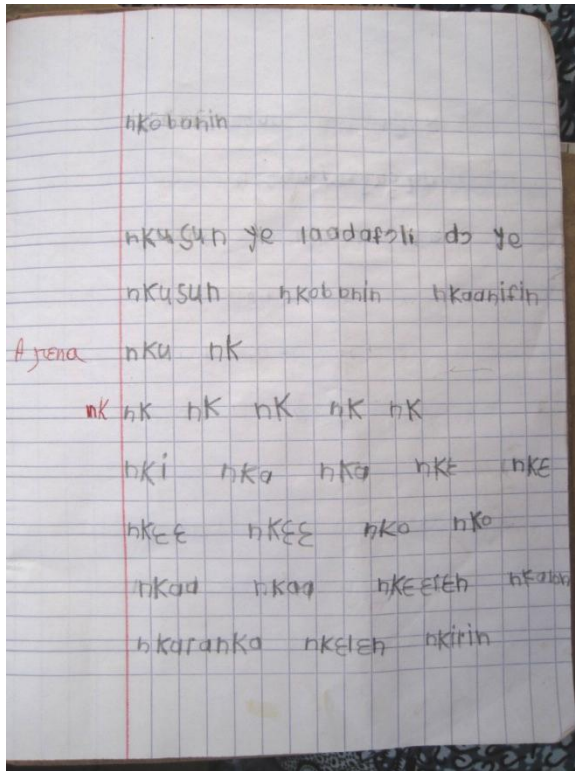 nkobonin
nkusun ye laadafɔli dɔ ye
nkusun nkobonin nkaanifin
A ɲɛna nku nk
nk nk nk nk nk nk
nki nka nka nkɛ nkɛ
nkɛɛ nkɛɛ nko nko
nkaa nkaa nkɛɛrɛn
nkaranka nkɛrɛn nkirin